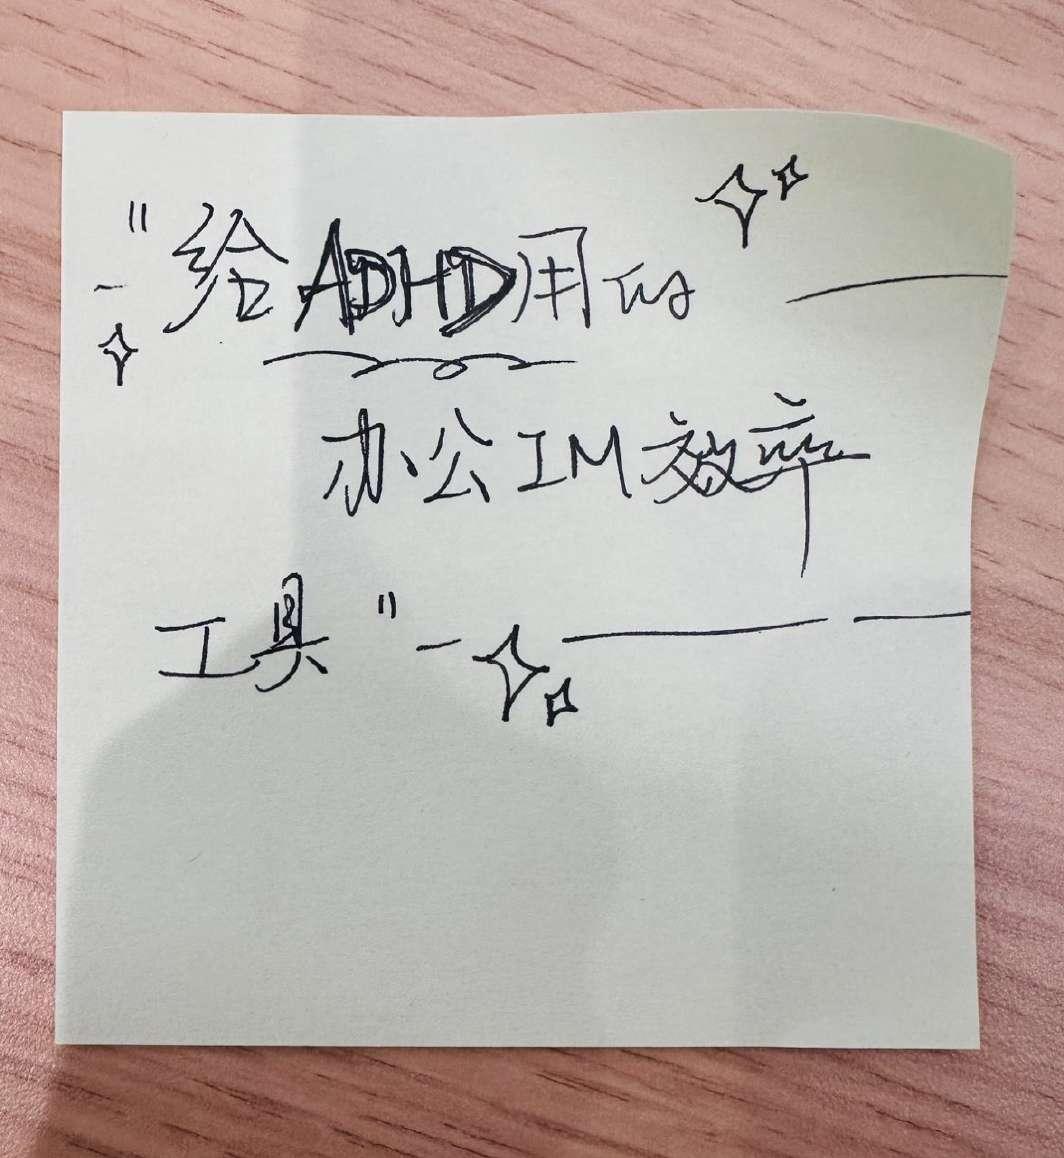 "给ADHD用的
办公IM效率
工具"